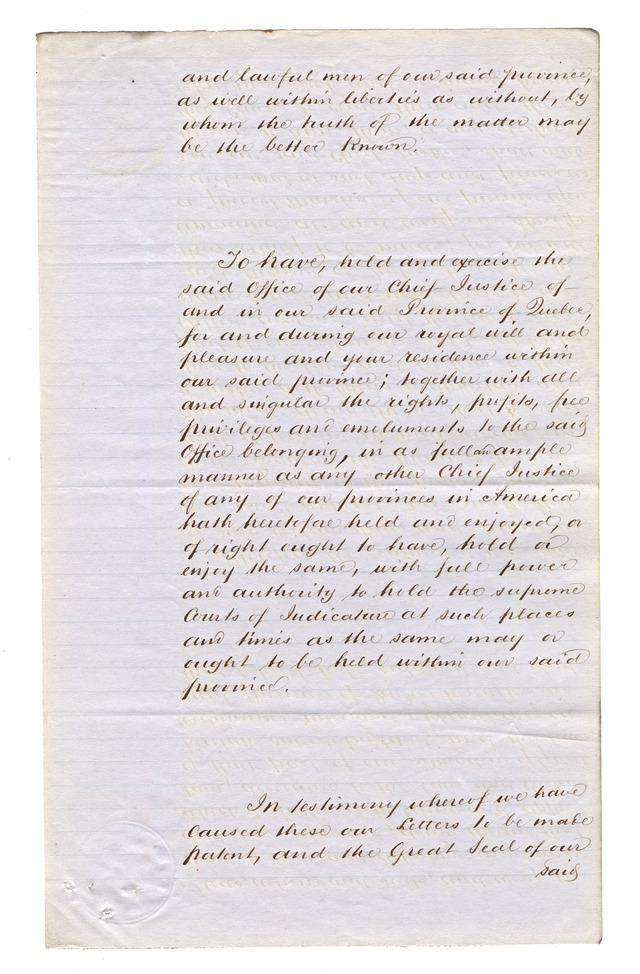 and lawful men of our said province,
as well within liberties as without, by
whom the truth of the matter may
be the better Known.
To have, hold and exercise the
said Office of our Chief Justice of
and in our said Province of Quebec,
for and during our royal will and
pleasure and your residence within
our said province; together with all
and singular the rights, profits, fee
privileges and emoluments to the said
Office belonging, in as full an ample
manner as any other Chief Justice
of any of our provinces in America
hath heretofore held and enjoyed, or
of right ought to have, hold or
enjoy the same, with full power
and authority to hold the supreme
Courts of Judicature at such places
and times as the same may or
ought to be held within our said
province.
In testimony whereof we have
caused these our Letters to be made
patent, and the Great Seal of our
said